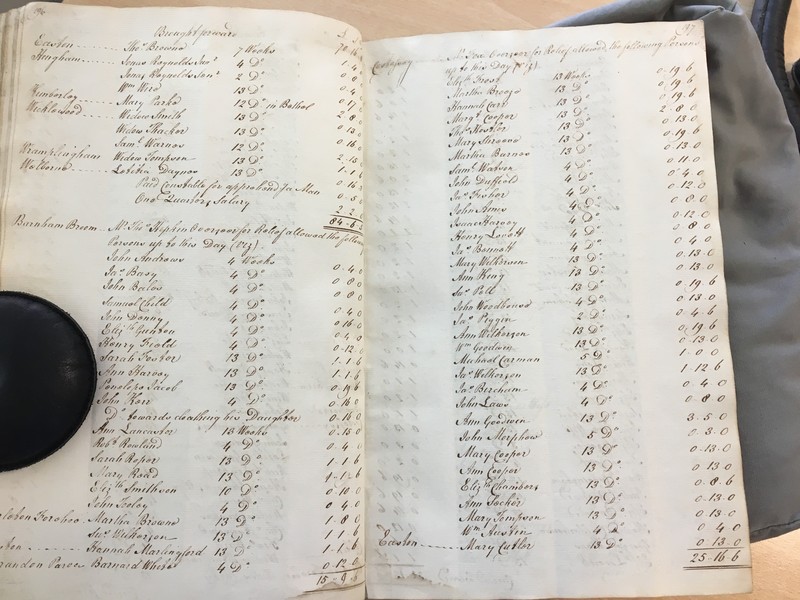 196
Brought forward
Easton Thos. Browne 7 Weeks
Hingham Jonas Reynolds Junr. 4 Do.
Jonas Reynolds Senr. 2 Do.
Wm. Wire 13 Do.
Kimberley Mary Parke 12 Do. in Bethel
Wicklewood Widow Smith 13 Do.
Widow Thacker 13 Do.
Saml. Warnes 12 Do.
Wramplingham Widow Tompson 13 Do.
Welborne Letitia Daynes 13 Do. 1-1-6
Paid Constable for apprehendg. a Man
One Quarters Salary
84-6-2
Barnham Broom Mr. Thos. Kipkin Overseer for Relief allowed the follow
Persons up to this Day (Viz)
John Andrews 4 Weeks
Jas. Bacy 4 Do. 0-4-0
John Beales 4 Do. 0-8-0
Samuel Child 4 Do. 0-8-0
John Denny 4 Do. 0-4-0
Elizth. Gunton 4 Do. 0-16-0
Henry Heald 4 Do. 0-4-0
Sarah Foster 13 Do. 0-12-0
Ann Harvey 13 Do. 1-1-6
Penelope Jacob 13 Do. 1-1-6
John Kerr 4 Do. 0-19-6
Do. towards cloathing his Daughter 0-16-0
Ann Lancaster 13 Weeks 0-13-0
Robt. Rowland 4 Do. 0-4-0
Sarah Roper 13 Do. 1-1-6
Mary Road 13 Do. 1-1-6
Elizth. Smithson 10 Do. 0-10-0
John Tooley 4 Do. 0-4-0
Carleton Forehoe Martha Browne 13 Do. 1-8-0
Sus. Wilkerson 13 Do. 1-1-6
Hannah Martingford 13 Do. 1-1-6
Brandon Parva Barnard Where 4 Do. 0-12-0
15-9-6
197
Costessey Mr. Overseer for Relief allowed the following Persons
up to this Day (Viz)
Elizth. Frost 13 Weeks 0-19-6
Martha Breeze 13 Do. 0-19-6
Hannah Carr 13 Do. 0-19-6
Margt. Cooper 13 Do. 2-8-0
Thos. Hostler 13 Do. 0-13-0
Mary Shreeve 13 Do. 0-19-6
Martha Barnes 13 Do. 0-13-0
Saml. Watson 4 Do. 0-11-0
John Duffield 4 Do. 0-4-0
Jas. Fisher 4 Do. 0-12-0
John Ames 4 Do. 0-8-0
Isaac Harvey 4 Do. 0-12-0
Henry Lovett 4 Do. 0-8-0
Jas. Bennett 4 Do. 0-4-0
Mary Wilkerson 13 Do. 0-13-0
Ann King 13 Do. 0-13-0
Sus. Pell 13 Do. 0-19-6
John Woodhouse 4 Do. 0-13-0
Jas. Piggin 2 Do. 0-4-6
Ann Wilkerson 13 Do. 0-19-6
Wm. Goodwin 13 Do. 0-13-0
Michael Carman 5 Do. 1-0-0
Jas. Wilkerson 13 Do. 1-12-6
Jas. Bircham 4 Do. 0-4-0
John Laws 4 Do. 0-8-0
Ann Goodwin 13 Do. 3-5-0
John Morphew 5 Do. 0-3-0
Mary Cooper 13 Do. 0-13-0
Ann Cooper 13 Do. 0-13-0
Elizth. Chambers 13 Do. 0-8-6
Ann Secker 13 Do. 0-13-0
Mary Tompson 13 Do. 0-13-0
Wm. Austin 4 Do. 0-4-0
Easton Mary Cutler 13 Do. 0-13-0
25-16-6